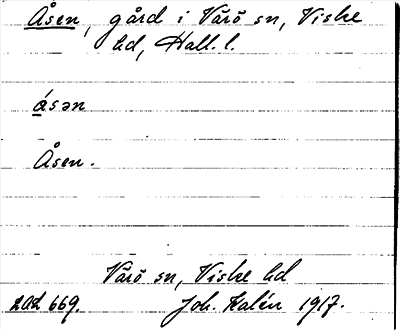 Åsen, gård i Värö sn, Viske
hd, Hall. l.
åsən
Åsen.
Värö sn, Viske hd
Joh. Kalén 1917.